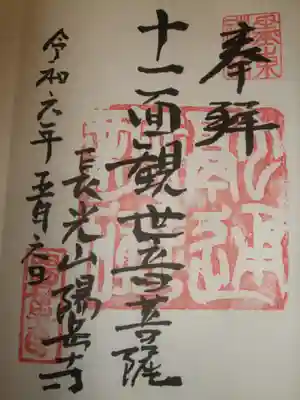 奉拝
十一面観世音菩薩
長光山陽岳寺
令和六年五月六日